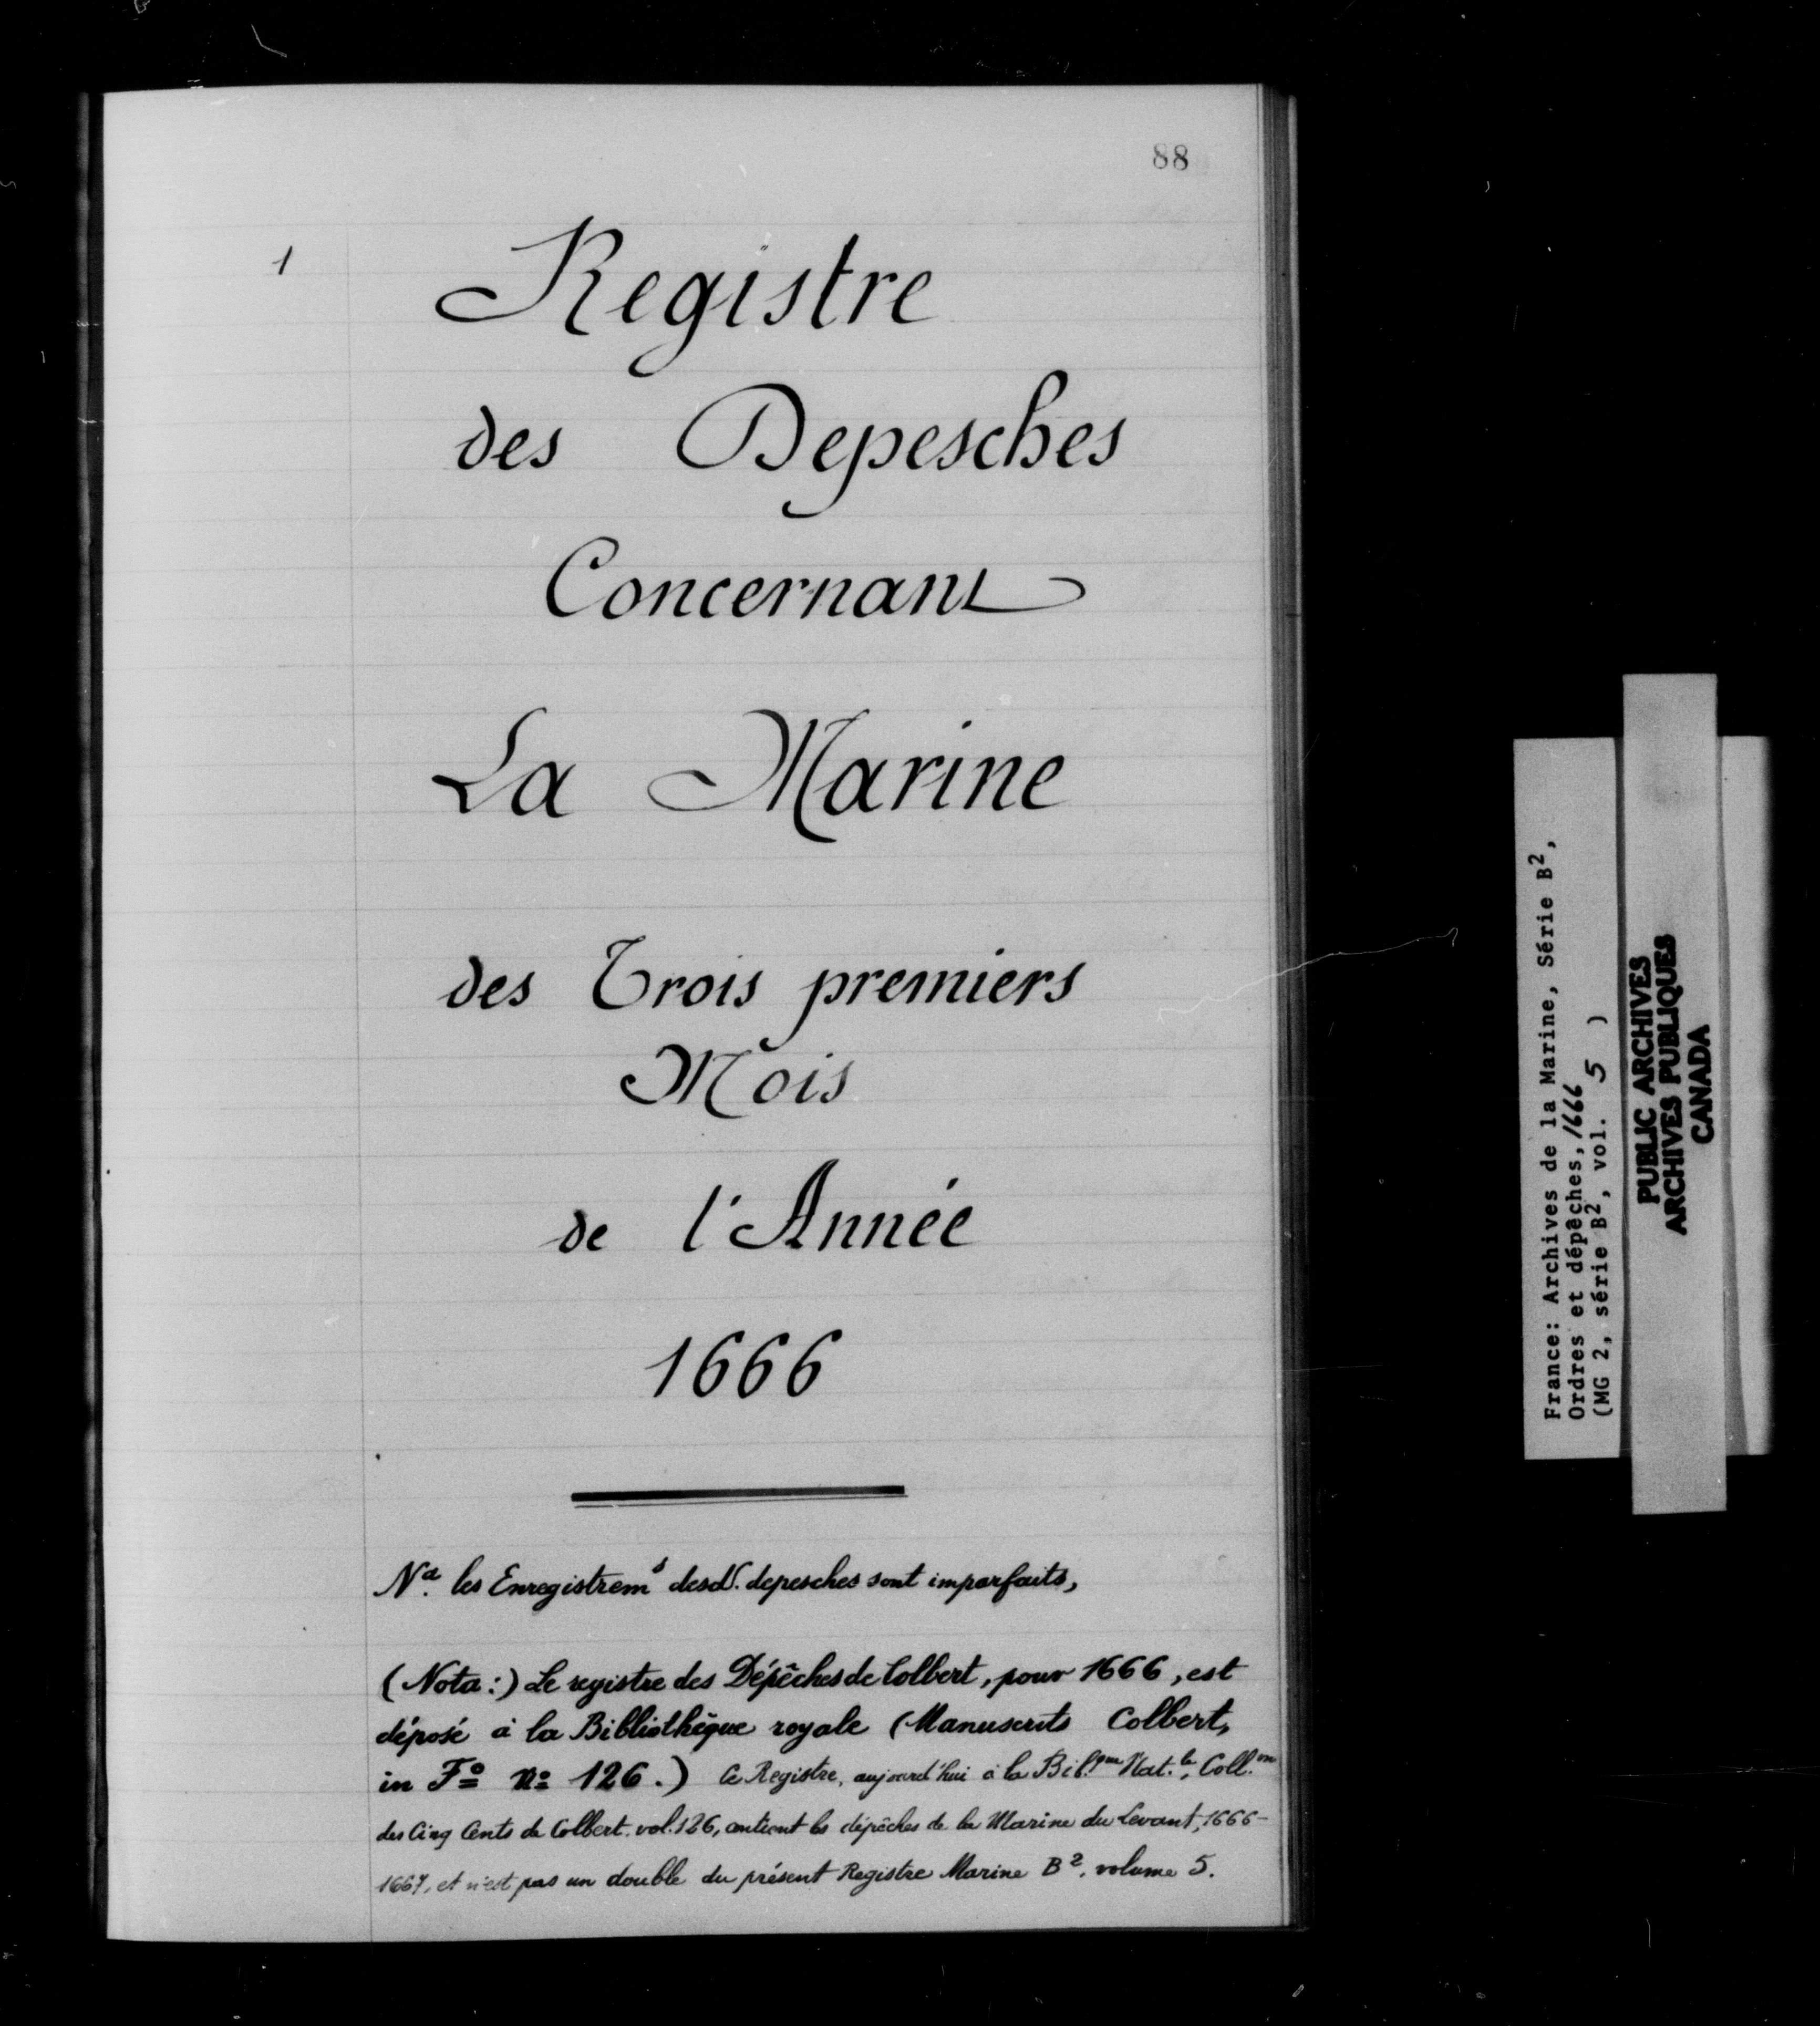 88
1
Registre
des Depesches
Concernant
La Marine
des Trois premiers
Mois
de l'Année
1666
Na. les Enregistrems desd. depesches sont imparfaits,
(Nota:) Le registre des Dépêches de Colbert, pour 1666, est
déposé à la Bibliothèque royale (Manuscrits Colbert,
in Fo No 126.) Ce Registre, aujourd'hui à la Bib.que Nat.le, Coll.on
des Cinq Cents de Colbert. vol. 126, contient les dépêches de la Marine du Levant, 1666-
1667, et n'est pas un double du présent Registre Marine B2, volume 5.
France: Archives de la Marine, Série B2,
Ordres et dépêches, 1666
(MG 2, série B2, vol. 5 )
PUBLIC ARCHIVES
ARCHIVES PUBLIQUES
CANADA